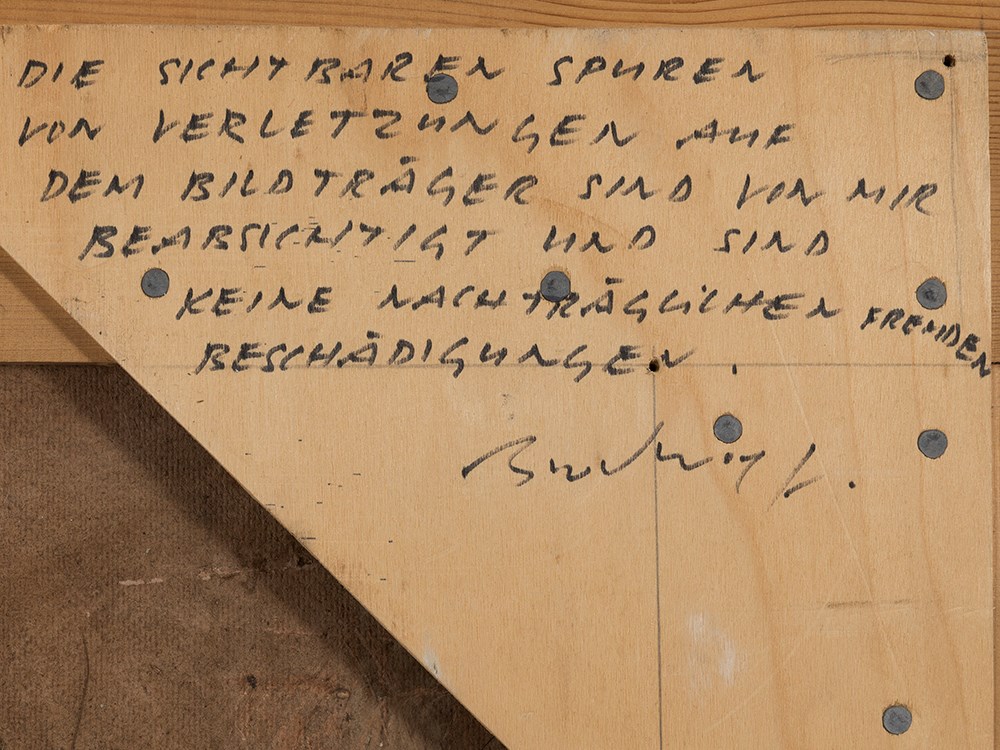 DIE SICHTBAREN SPUREN
VON VERLETZUNGEN AUF
DEM BILDTRÄGER SIND VON MIR
BEABSICHTIGT UND SIND
KEINE NACHTRÄGLICHEN FREMDEN
BESCHÄDIGUNGEN .